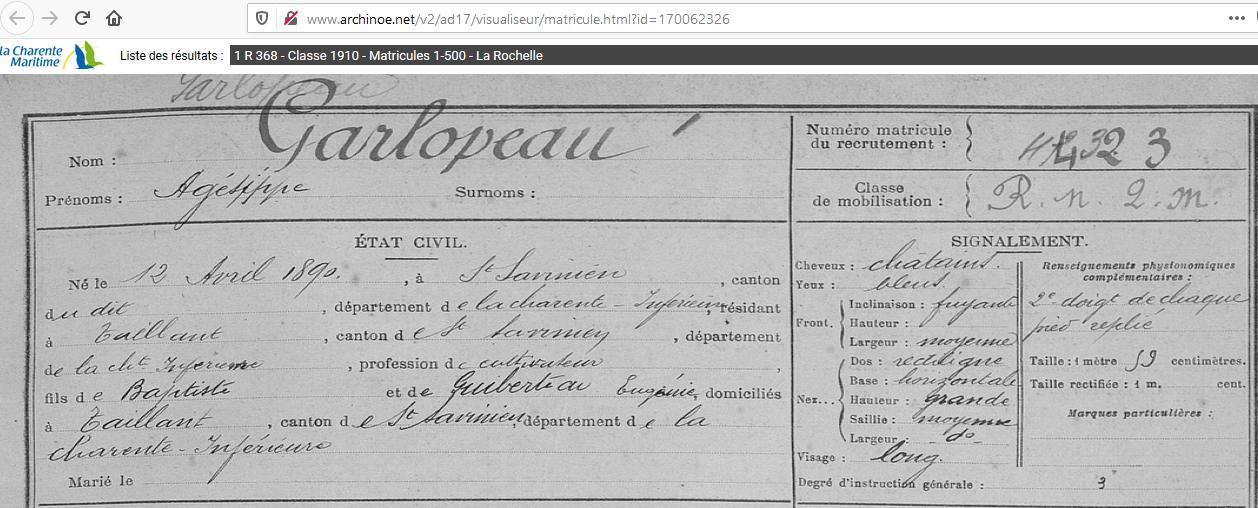 www.archinoe.net/v2/ad17/visualiseur/matricule.html?id=170062326
la Charente Maritime
Liste des résultats : 1 R 368 - Classe 1910 - Matricules 1-500 - La Rochelle
Garlopeau
Nom : Garlopeau
Prénoms : Agésippe Surnoms :
Numéro matricule du recrutement : 3
Classe de mobilisation : R. n. 2. m.
ÉTAT CIVIL.
Né le 12 Avril 1890. , à St Savinien , canton
du dit , département de la charente - Inférieure, résidant
à Taillant , canton de St Savinien , département
de la cht Inférieure , profession de cultivateur ,
fils de Baptiste et de Guiberteau Eugénie, domiciliés
à Taillant , canton de St Savinien, département de la
charente - Inférieure
Marié le
SIGNALEMENT.
Cheveux : châtains.
Yeux : bleus.
Front. Inclinaison : fuyante
Hauteur :
Largeur : moyenne
Nez... Dos : rectiligne
Base : horizontale
Hauteur : grande
Saillie : moyenne
Largeur : do
Visage : long.
Renseignements physionomiques complémentaires :
2e doigt de chaque
pied replié
Taille : 1 mètre 59 centimètres.
Taille rectifiée : 1 m. cent.
Marques particulières :
Degré d'instruction générale : 3